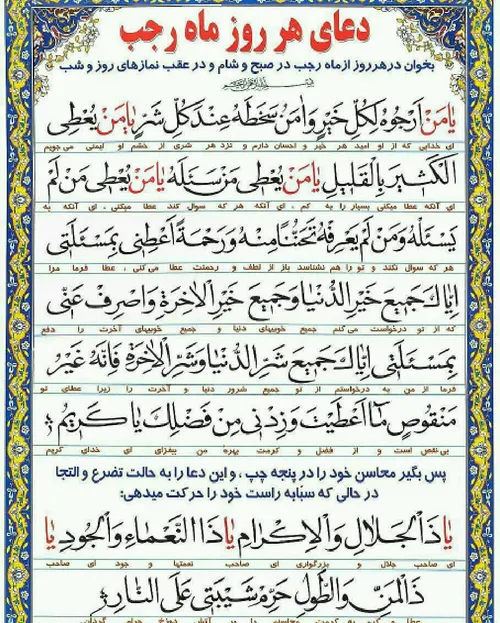 دعای هر روز ماه رجب
بخوان درهرروز ازماه رجب در صبح و شام و در عقب نمازهای روز و شب
يَا مَنْ أَرْجُوهُ لِكُلِّ خَيْرٍ وَآمَنُ سَخَطَهُ عِنْدَ كُلِّ شَرٍّ يَا مَنْ يُعْطِي
ای خدایی که از او امید هر خیر و احسان دارم و نزد هر شری از خشم او ایمنی می جویم
الْكَثِيرَ بِالْقَلِيلِ يَا مَنْ يُعْطِي مَنْ سَئَلَهُ يَا مَنْ يُعْطِي مَنْ لَمْ
ای آنکه عطا میکنی بسیار را به کم ، ای آنکه هر که سوال کند عطا میکنی ، ای آنکه به
يَسْئَلْهُ وَمَنْ لَمْ يَعْرِفْهُ تَحَنُّنًا مِنْهُ وَرَحْمَةً أَعْطِنِي بِمَسْئَلَتِي
هر که سوال نکند و تو را هم نشناسد باز از لطف و رحمتت عطا می کنی ، عطا فرما مرا
إِيَّاكَ جَمِيعَ خَيْرِ الدُّنْيَا وَجَمِيعَ خَيْرِ الْآخِرَةِ وَاصْرِفْ عَنِّي
که از تو درخواست می کنم جمیع خوبیهای دنیا و جمیع خوبیهای آخرت را دفع
بِمَسْئَلَتِي إِيَّاكَ جَمِيعَ شَرِّ الدُّنْيَا وَشَرِّ الْآخِرَةِ فَإِنَّهُ غَيْرُ
فرما از من به درخواستم از تو جمیع شرور دنیا و آخرت را زیرا عطای تو
مَنْقُوصٍ مَا أَعْطَيْتَ وَزِدْنِي مِنْ فَضْلِكَ يَا كَرِيمُ
بی نقص است و از فضل و کرمت بهره من بیفزای ای خدای کریم
پس بگیر محاسن خود را در پنجه چپ ، و این دعا را به حالت تضرع و التجا
در حالی که سبّابه راست خود را حرکت میدهی:
يَا ذَا الْجَلَالِ وَالْإِكْرَامِ يَا ذَا النَّعْمَاءِ وَالْجُودِ يَا
ای صاحب جلال و بزرگواری ای صاحب نعمتها و جود ای صاحب
ذَا الْمَنِّ وَالطَّوْلِ حَرِّمْ شَيْبَتِي عَلَى النَّارِ